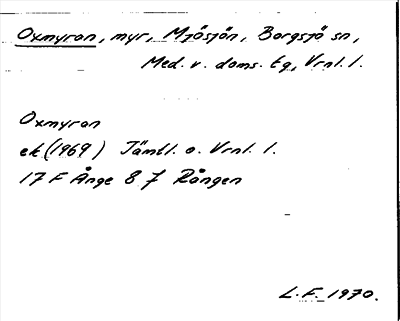 Oxmyran, myr, Mjösjön, Borgsjö sn,
Med. v. doms. tg, Vrnl. l.
Oxmyran
ek (1969) Jämtl. o. Vrnl. l.
17 F Ånge 8 f Rången
L.F. 1970.